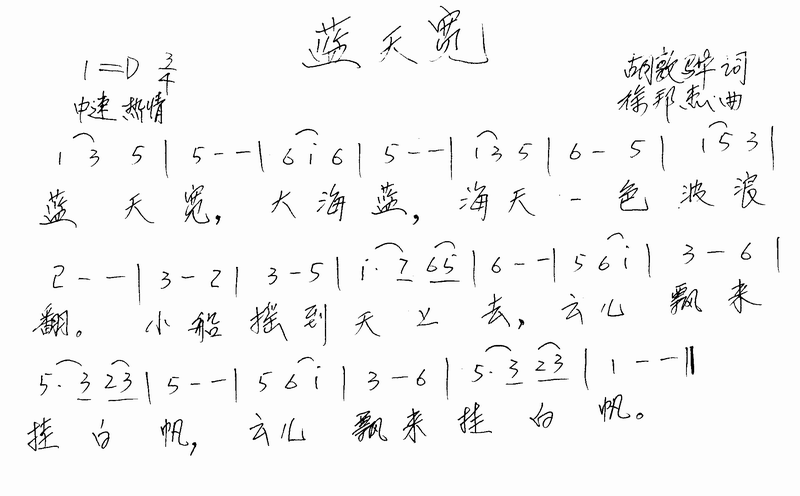 蓝天宽
1=D 3/4 胡敦骅词
中速 热情 徐邦杰曲
1 3 5 | 5 - - | 6 i 6 | 5 - - | i 3 5 | 6 - 5 | i 5 3 |
蓝 天 宽, 大 海 蓝, 海 天 一 色 波 浪
2 - - | 3 - 2 | 3 - 5 | i· 7 65 | 6 - - | 5 6 i | 3 - 6 |
翻。 小 船 摇 到 天 上 去, 云 儿 飘 来
5· 3 23 | 5 - - | 5 6 i | 3 - 6 | 5· 3 23 | 1 - - ‖
挂 白 帆, 云 儿 飘 来 挂 白 帆。